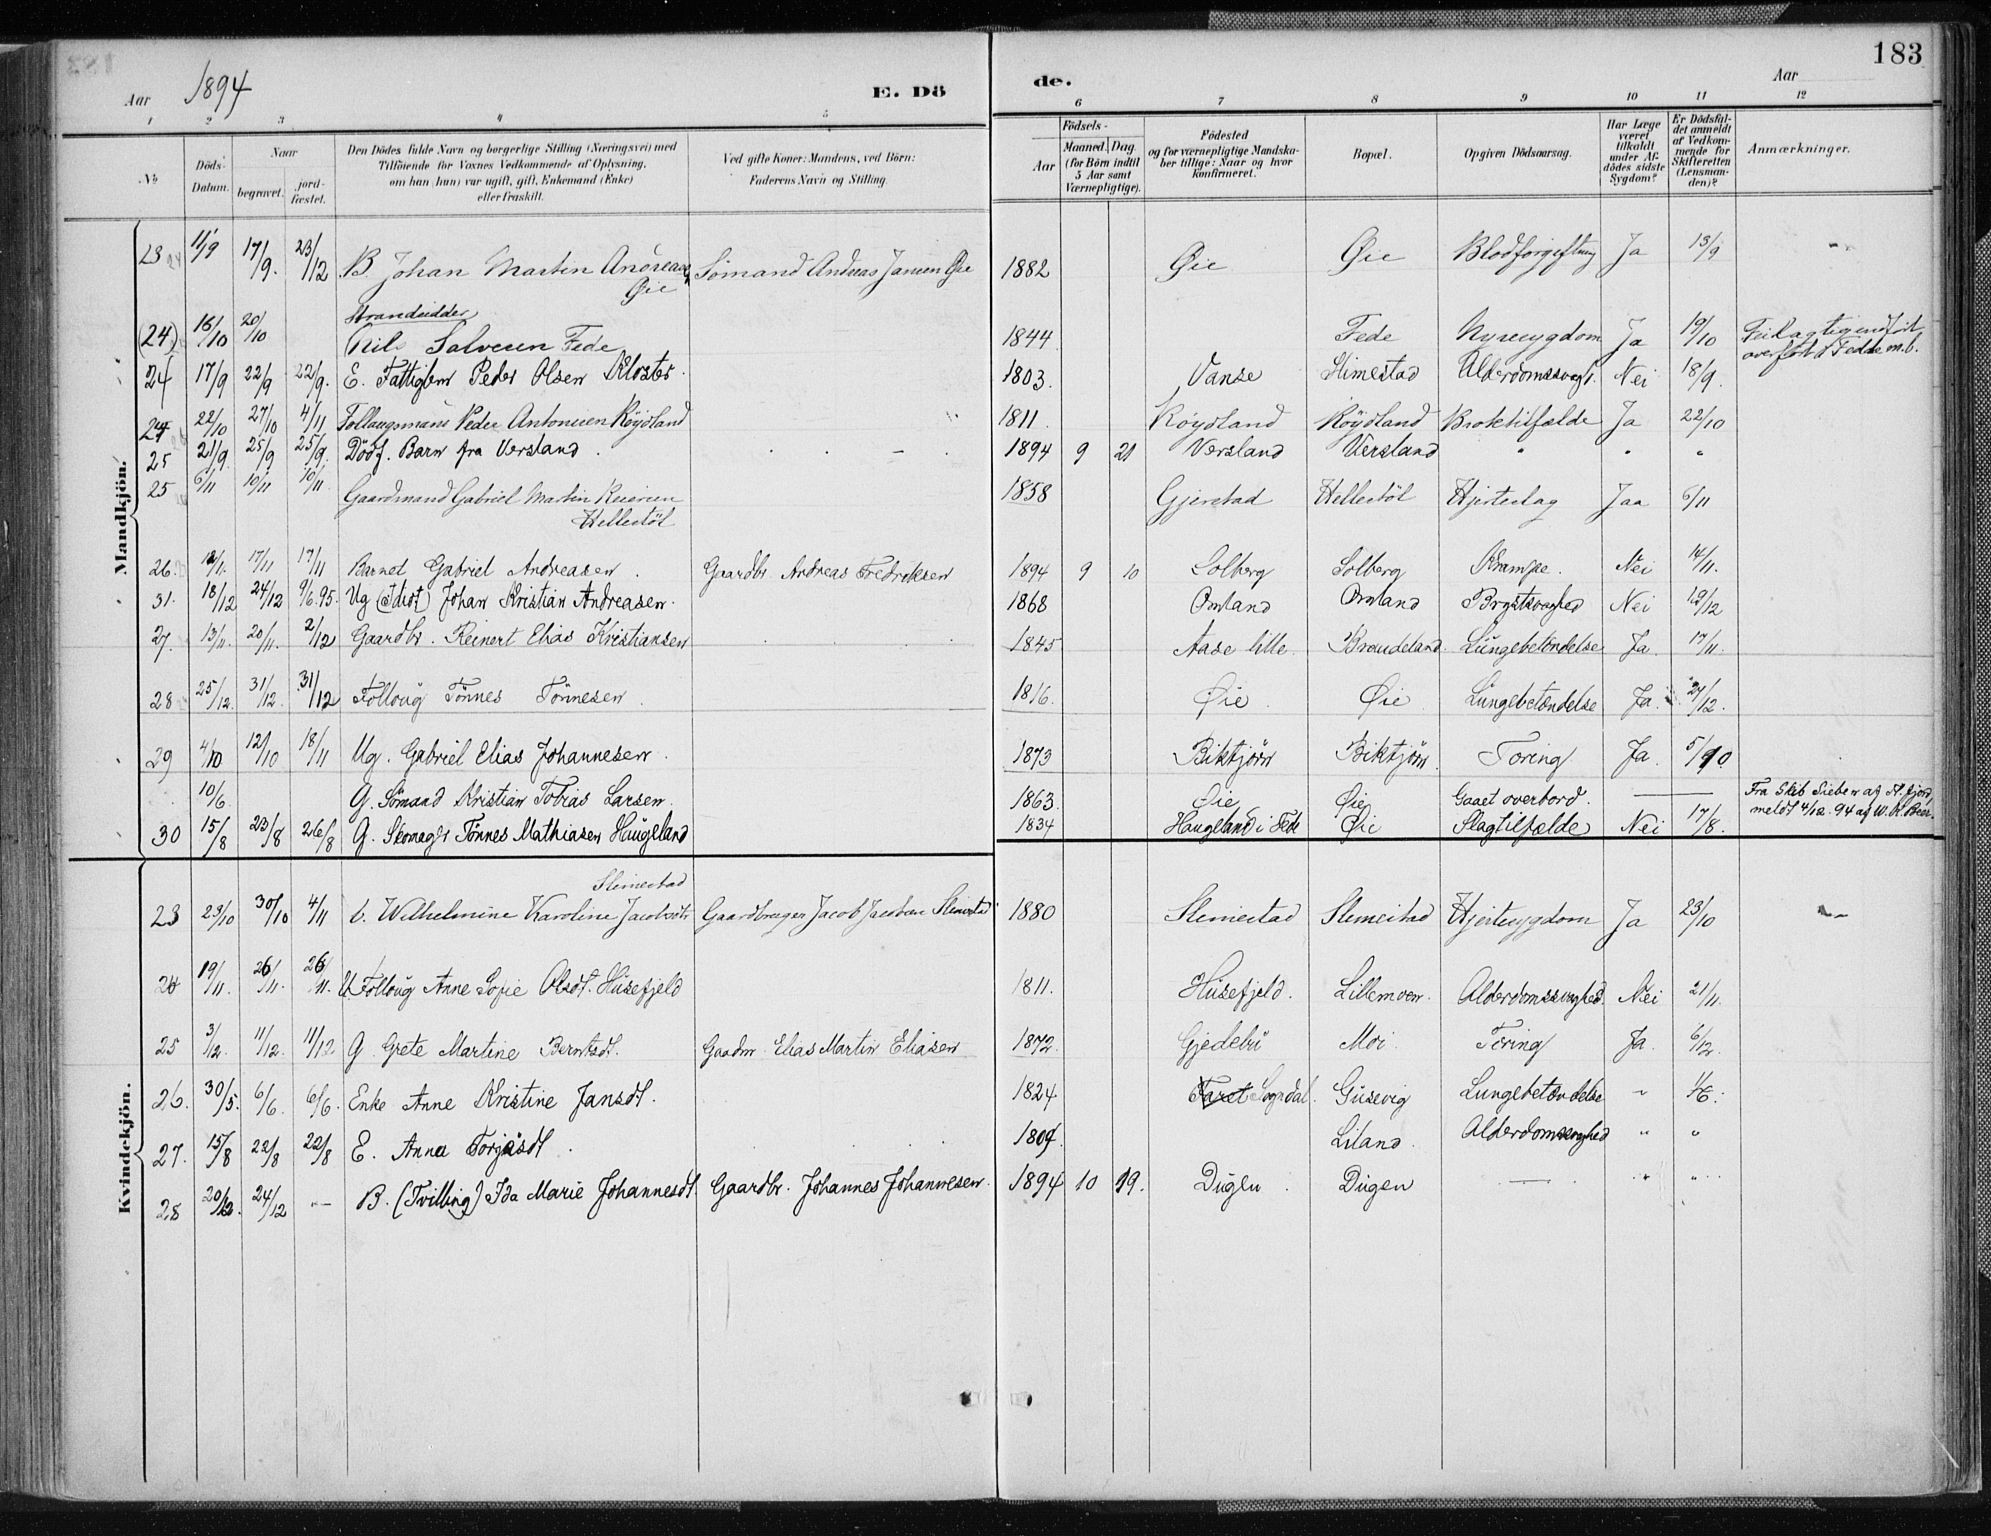 183
Aar 1894 E. Dö de. Aar
1 2 3 4 5 6 7 8 9 10 11 12
No Döds-Datum. Naar begravet. jord-fæstet. Den Dödes fulde Navn og borgerlige Stilling (Næringsvei) med Tilföiende for Voxnes Vedkommende af Oplysning, om han (hun) var ugift, gift, Enkemand (Enke) eller fraskilt. Ved gifte Koner: Mandens, ved Börn: Faderens Navn og Stilling. Födsels- Aar Maaned. Dag. (for Börn indtil 5 Aar samt Værnepligtige). Födested og for værnepligtige Mandskaber tillige: Naar og hvor Konfirmeret. Bopæl. Opgiven Dödsaarsag. Har Læge været tilkaldt under Afdödes sidste Sygdom? Er Dödsfaldet anmeldt af Vedkommende for Skifteretten (Lensmanden)? Anmærkninger.
Mandkjön.
23 11/9 17/9. 23/12 B. Johan Martin Andreas Øie Sömand Andreas Jansen Øie 1882 Øie Øie Blodforgiftning Ja 13/9
Strandsidder
(24) 16/10 20/10 Nils Salvesen Fede 1844 Fede Nyresygdom Ja 19/10 overført i Fedde m.b.
24 17/9 22/9 22/9. E. Fattiglem Peder Olsen Kloster. 1803. Vanse Slimestad Alderdomssvagh. Nei 18/9.
24 22/10 27/10 4/11 Follaugsmand Peder Antonisen Röydland 1811. Röydland Röydland Broktilfælde Ja 22/10
25 21/9 25/9 25/9 Dödf. Barn fra Versland. 1894 9 21 Versland Versland " " "
25 6/11 10/11 10/11 Gaardmand Gabriel Martin Reiersen Hellestöl 1858 Gjerstad Hellestöl Hjerteslag Jaa 6/11
26. 17/11 17/11 Barnet Gabriel Andreasen. Gaardbr. Andreas Fredriksen 1894 9 10 Solberg Solberg Krampe. Nei 14/11.
31. 18/12 24/12 9/6.95. Ug (Idiot) Johan Kristian Andreasen. 1868 Omland Omland Brystsvaghed Nei 19/12
27. 13/11. 20/11. 2/12 Gaardbr. Reinert Elias Kristiansen 1845 Aase lille. Braudeland. Lungebetendelse Ja. 17/11.
28 25/12. 31/12. 31/12 Follöug Tönnes Tönnesen. 1816. Øie. Øie. Lungebetændelse Ja. 27/12.
29 4/10 12/10 18/11 Ug. Gabriel Elias Johannesen. 1873 Biktjörn Biktjörn. Toring Ja. 5/10.
10/6. G. Sömand Kristian Tobias Larsen. 1863. Øie Øie Gaaet overbord. Fra Skib Sieben af meldt 4/12. 94 af
30 15/8 23/8 26/8 G. Skomager Tönnes Mathiasen Haugeland 1834 Haugeland i Fede Øie Slagtilfælde Nei 17/8.
Kvindekjön.
Slimestad
23 23/10 30/10 4/11 U. Wilhelmine Karoline Jacobsdtr Gaardbruger Jacob Jacobsen Slimestad 1880 Slimestad Slimestad Hjertesygdom Ja 23/10
24 19/11. 26/11. 26/11. U. Follöug Anne Sofie Olsdt. Husefjeld 1811. Husefjeld. Lillemoen. Alderdomssvaghed. Nei 21/11.
25 3/12. 11/12. 11/12 G. Grete Martine Berntsdt. Gaadm. Elias Martin Eliasen 1872. Gjedebö Moi Tæring Ja. 6/12.
26. 30/5. 6/6. 6/6. Enke Anne Kristine Jansdt. 1824 Sogndal. Gusevig Lungebetændelse "
27. 15/8 22/8 22/8 E. Anna Torjusdt. Liland. Alderdomssvaghed " "
28 20/12. 24/12 — B. (Tvilling) Ida Marie Johannesdt. Gaardbr. Johannes Johannesen. 1894 10 19. Dugen. Dugen — " "